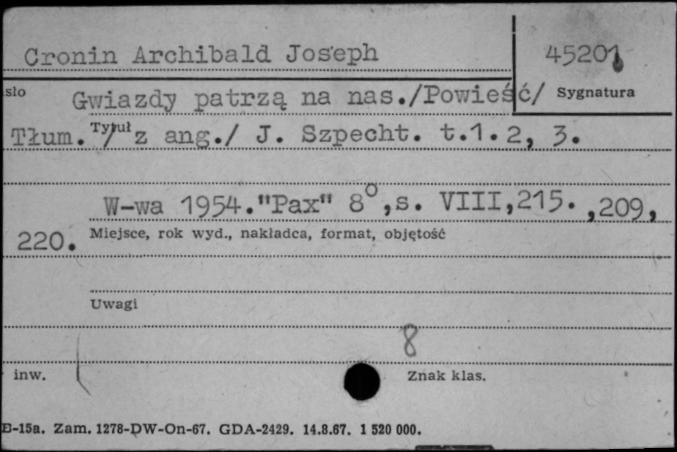 Cronin Archibald Joseph
45201
sło
Gwiazdy patrzą na nas./Powieść/
Sygnatura
Tłum. /z ang./ J. Szpecht. t.1. 2, 3.
Tytuł
W-wa 1954."Pax" 8°,s. VIII,215. ,209,
220.
Miejsce, rok wyd., nakładca, format, objętość
Uwagi
8
inw.
Znak klas.
E-15a. Zam. 1278-DW-On-67. GDA-2429. 14.8.67. 1 520 000.